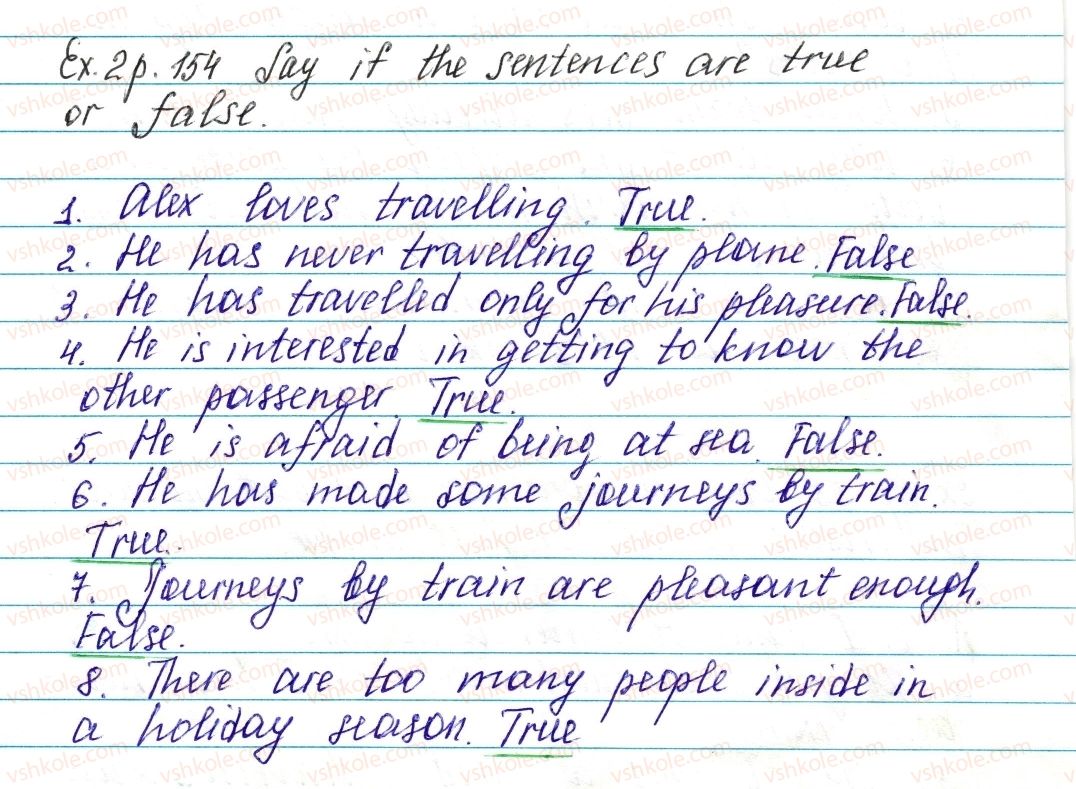 Ex. 2 p. 154 Say if the sentences are true
or false.
1. Alex loves travelling. True.
2. He has never travelling by plane. False
3. He has travelled only for his pleasure. False.
4. He is interested in getting to know the
other passenger. True.
5. He is afraid of being at sea. False.
6. He has made some journeys by train.
True.
7. Journeys by train are pleasant enough.
False.
8. There are too many people inside in
a holiday season. True